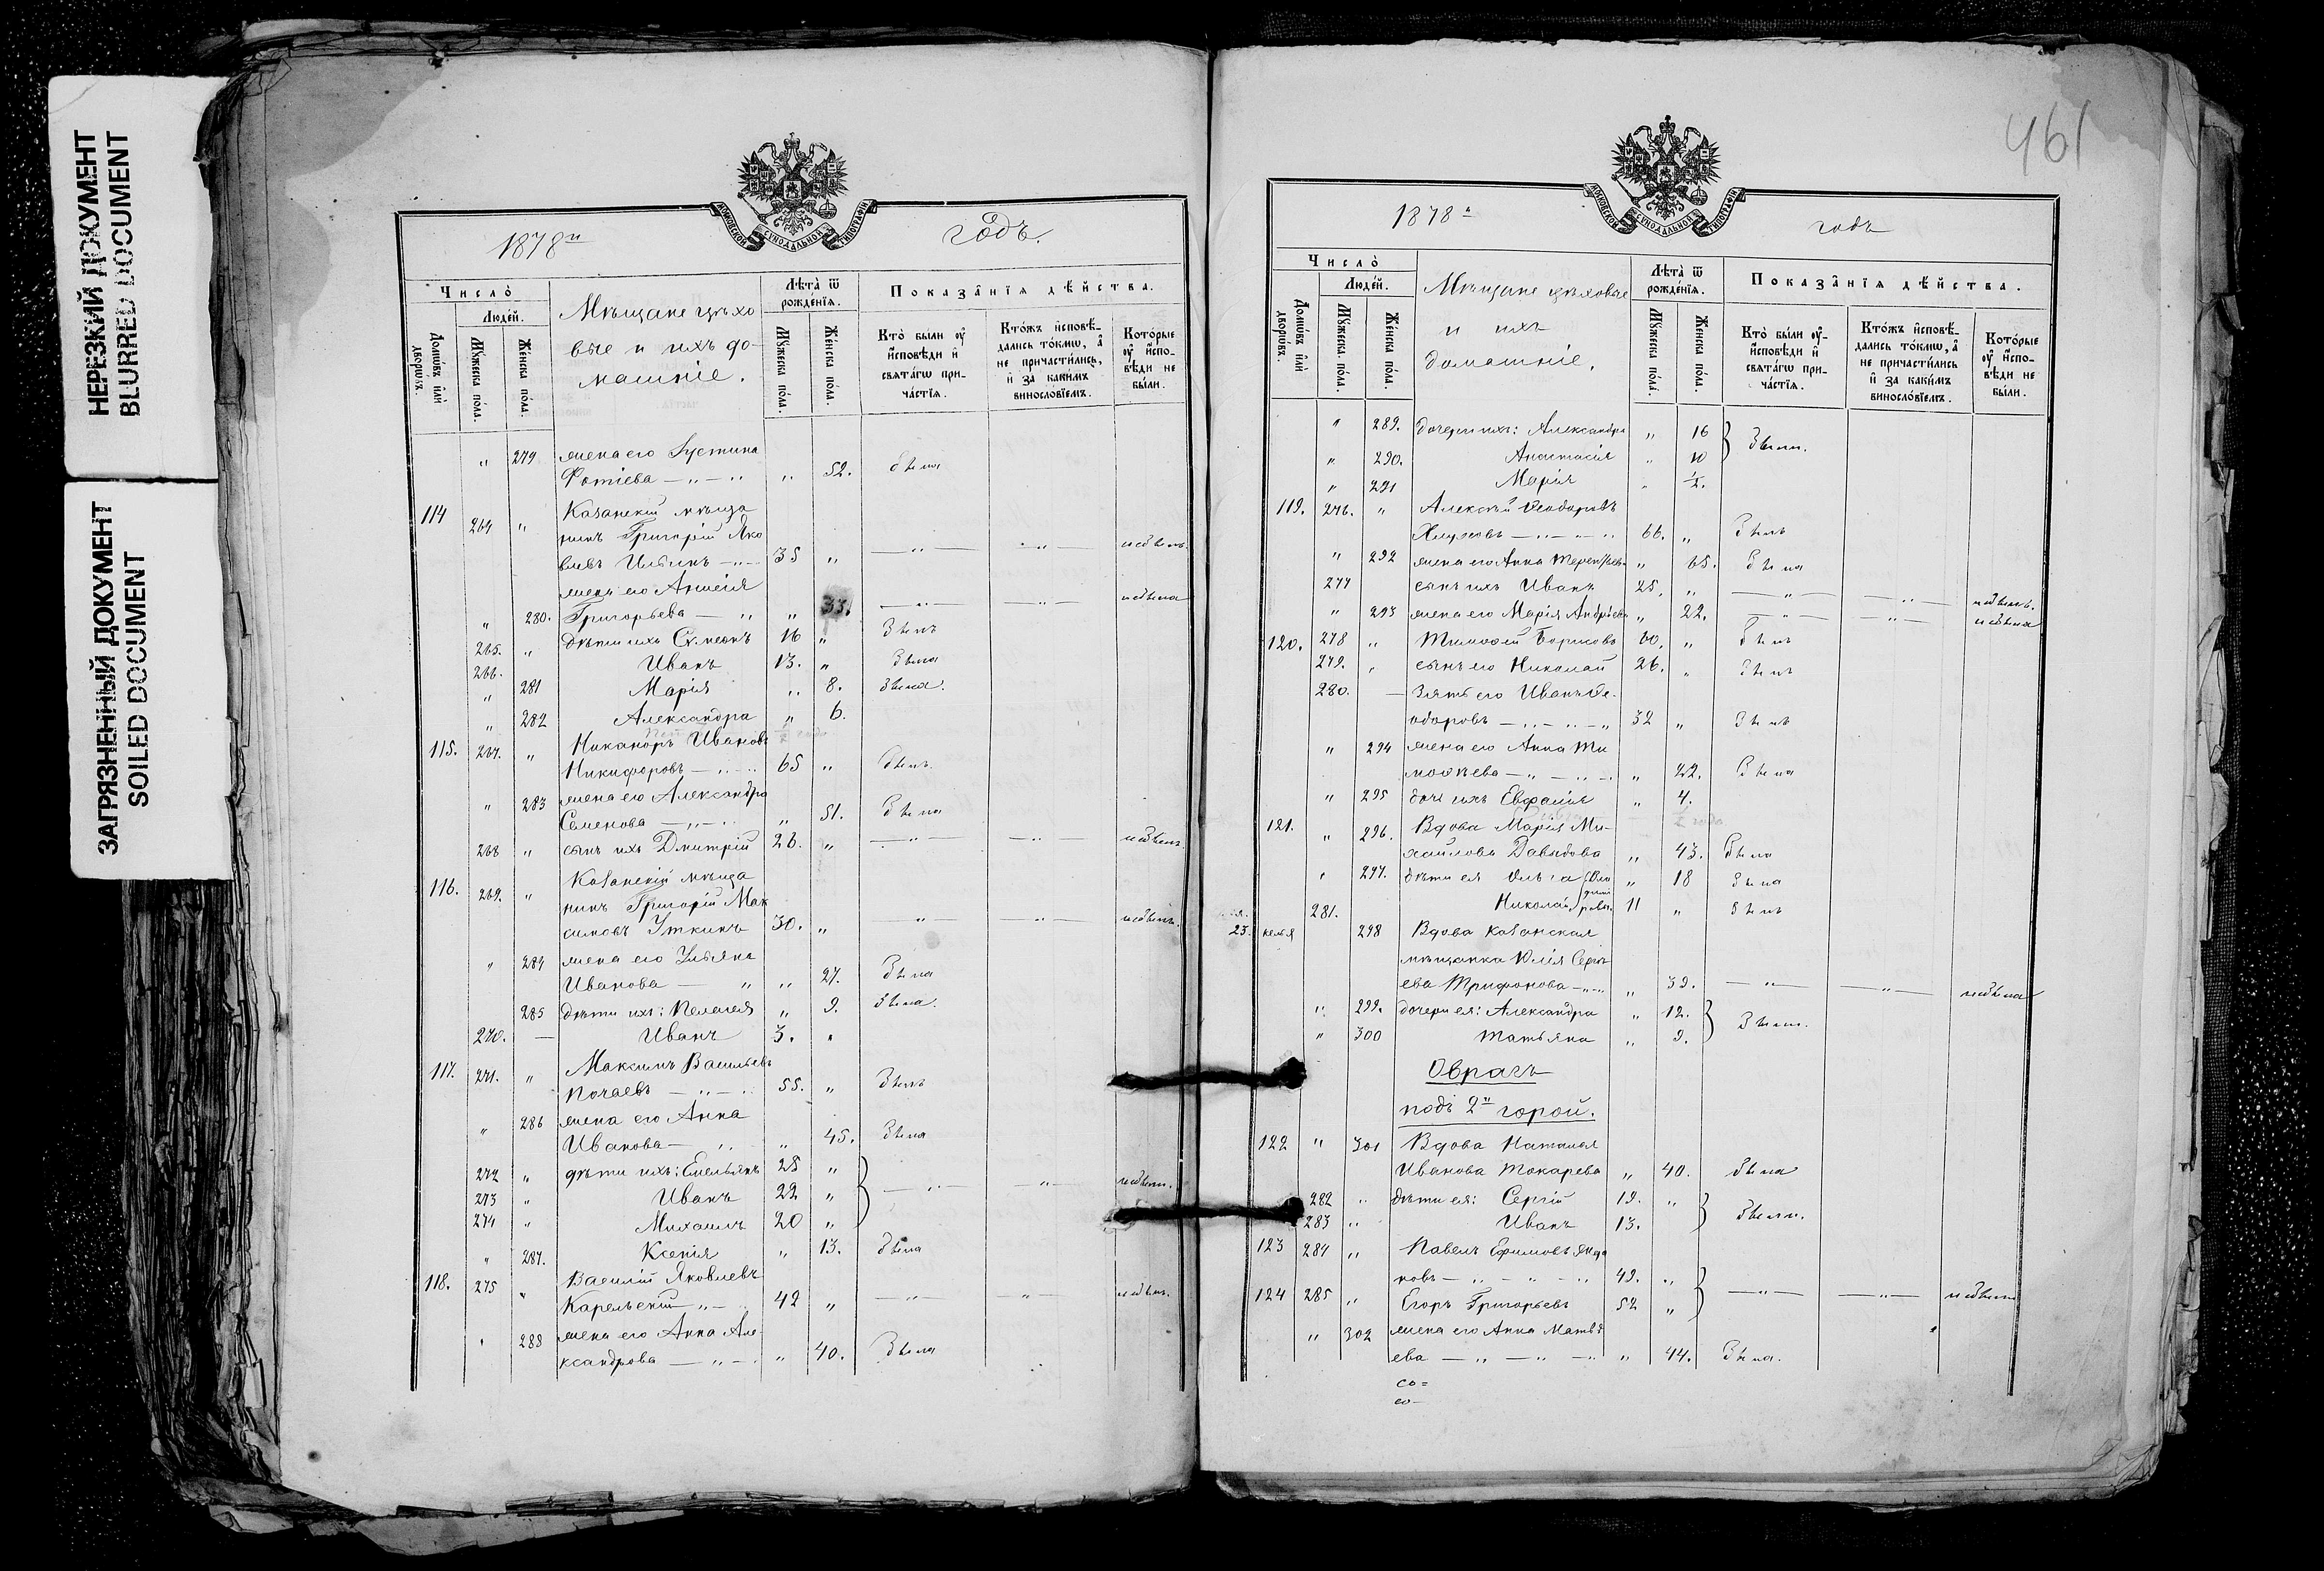 НЕРЕЗКИЙ ДОКУМЕНТ
BLURRED DOCUMENT
ЗАГРЯЗНЕННЫЙ ДОКУМЕНТ
SOILED DOCUMENT
МОСКОВСКОЙ СУНОДАЛЬНОЙ ТИПОГРАФІИ
1878й годъ.
Число̀
Люде́й.
Домѡ́въ и҆лѝ дворѡ́въ.
Мꙋ́жеска по́ла.
Же́нска по́ла.
Мѣщане цѣхо
вые и ихъ до-
машніе.
Лѣта̀ ѿ рожде́нїѧ.
Мꙋ́жеска по́ла.
Же́нска по́ла.
Показа̑нїѧ дѣ́йства.
Кто̀ бы́ли ᲂу҆
и҆сповѣ́ди и҆
свѧта́гѡ при-
ча́стїѧ.
Кто́жъ и҆сповѣ́-
дались то́кмѡ, а҆
не причасти́лись,
и҆ за каки́мъ
винослові́емъ.
Кото́рые
ᲂу҆ и҆спо-
вѣ́ди не
бы́ли.
" 279 жена его Іустина
Фотіева — " — " " 52. была
114 264 " Казанскій мѣща
нинъ Григорій Яко
влевъ Ильинъ — " — 35 " — " — — " — небылъ.
жена его
" 280. Григорьева — " " 33. — " — — " — небыла
265. " дѣти ихъ Симеонъ 16 " былъ
266. Иванъ 13. " была
" 281 Марія " 8. была.
" 282 Александра " 6.
115. 267. " Никаноръ Ивановъ
Никифоровъ — " — 65 " былъ.
" 283 жена его Александра
Семенова — " — " 51. была
268 " сынъ ихъ Дмитрій 26. " — " — — " — небылъ
116. 269. " Казанскій мѣща
нинъ Григорій Мак
симовъ Уткинъ 30. " " — " — небылъ.
" 284 жена его Ульяна
Иванова — " " 27. была
285 дѣти ихъ: Пелагея " 9. была.
270. — Иванъ 3. "
117. 271. " Максимъ Васильевъ
Почаевъ — " — 55. " былъ
" 286 жена его Анна
Иванова — " " 45. была
272 " дѣти ихъ: Емельянъ 25 "
273 " Иванъ 22 " — " — " — небыли.
274 " Михаилъ 20 "
" 287. Ксенія " 13. была
118. 275 " Василій Яковлевъ
Карельскій — " — 42 " — " — " — небылъ.
" 288 жена его Анна Але-
ксандрова — " — " 40. была
461
МОСКОВСКОЙ СУНОДАЛЬНОЙ ТИПОГРАФІИ
1878й годъ
Число̀
Люде́й.
Домѡ́въ и҆лѝ дворѡ́въ.
Мꙋ́жеска по́ла.
Же́нска по́ла.
Мѣщане цѣховые
и ихъ
домашніе.
Лѣта̀ ѿ рожде́нїѧ.
Мꙋ́жеска по́ла.
Же́нска по́ла.
Показа̑нїѧ дѣ́йства.
Кто̀ бы́ли ᲂу҆-
и҆сповѣ́ди и҆
свѧта́гѡ при-
ча́стїѧ.
Кто́жъ и҆сповѣ́-
дались то́кмѡ, а҆
не причасти́лись
и҆ за каки́мъ
винослові́емъ.
Кото́рые
ᲂу҆ и҆спо-
вѣ́ди не
бы́ли.
" 289. дочери ихъ: Александра " 16
" 290. Анастасія " 10 были.
" 291 Марія " ½.
119. 276. " Алексѣй Ѳеодоровъ
66. " былъ
" 292 жена его Анна Терентьева " 65. была
277 сынъ ихъ Иванъ 25. " — " — — " — небылъ.
" 293 жена его Марія Андреева " 22. — " — — " — небыла
120. 278 " Тимоѳей Борисовъ 60. " былъ
279. " сынъ его Николай 26. " былъ
280. — Зять его Иванъ Ѳе-
одоровъ — " — " — " 32 " былъ
" 294 жена его Анна Ти
моѳеева — " — " — " 22. была
" 295 дочь ихъ Евфимія " 4.
121. " 296. Вдова Марія Ми-
хайлова Давыдова " 43. была
" 297. дѣти ея Ольга " 18 была
281. Николай 11 " былъ
23. келья 298 Вдова Казанская
мѣщанка Юлія Сергѣ
ева Трифонова — " — " 39. — " — — " — небыла
" 299. дочери ея: Александра " 12.
" 300 Татьяна " 9. были.
Оврагъ
подъ 2й горой.
122 " 301 Вдова Наталья
Иванова Токарева " 40. была
282 " дѣти ея: Сергій 19. "
283 " Иванъ 13. были.
123 284 " Павелъ Ефимовъ
ковъ — " — " — " 49. "
124 285 " Егоръ Григорьевъ 52 " — " — — " — небыли
" 302 жена его Анна Матвѣ
ева — " — " — " " 44. была.
со=
со—